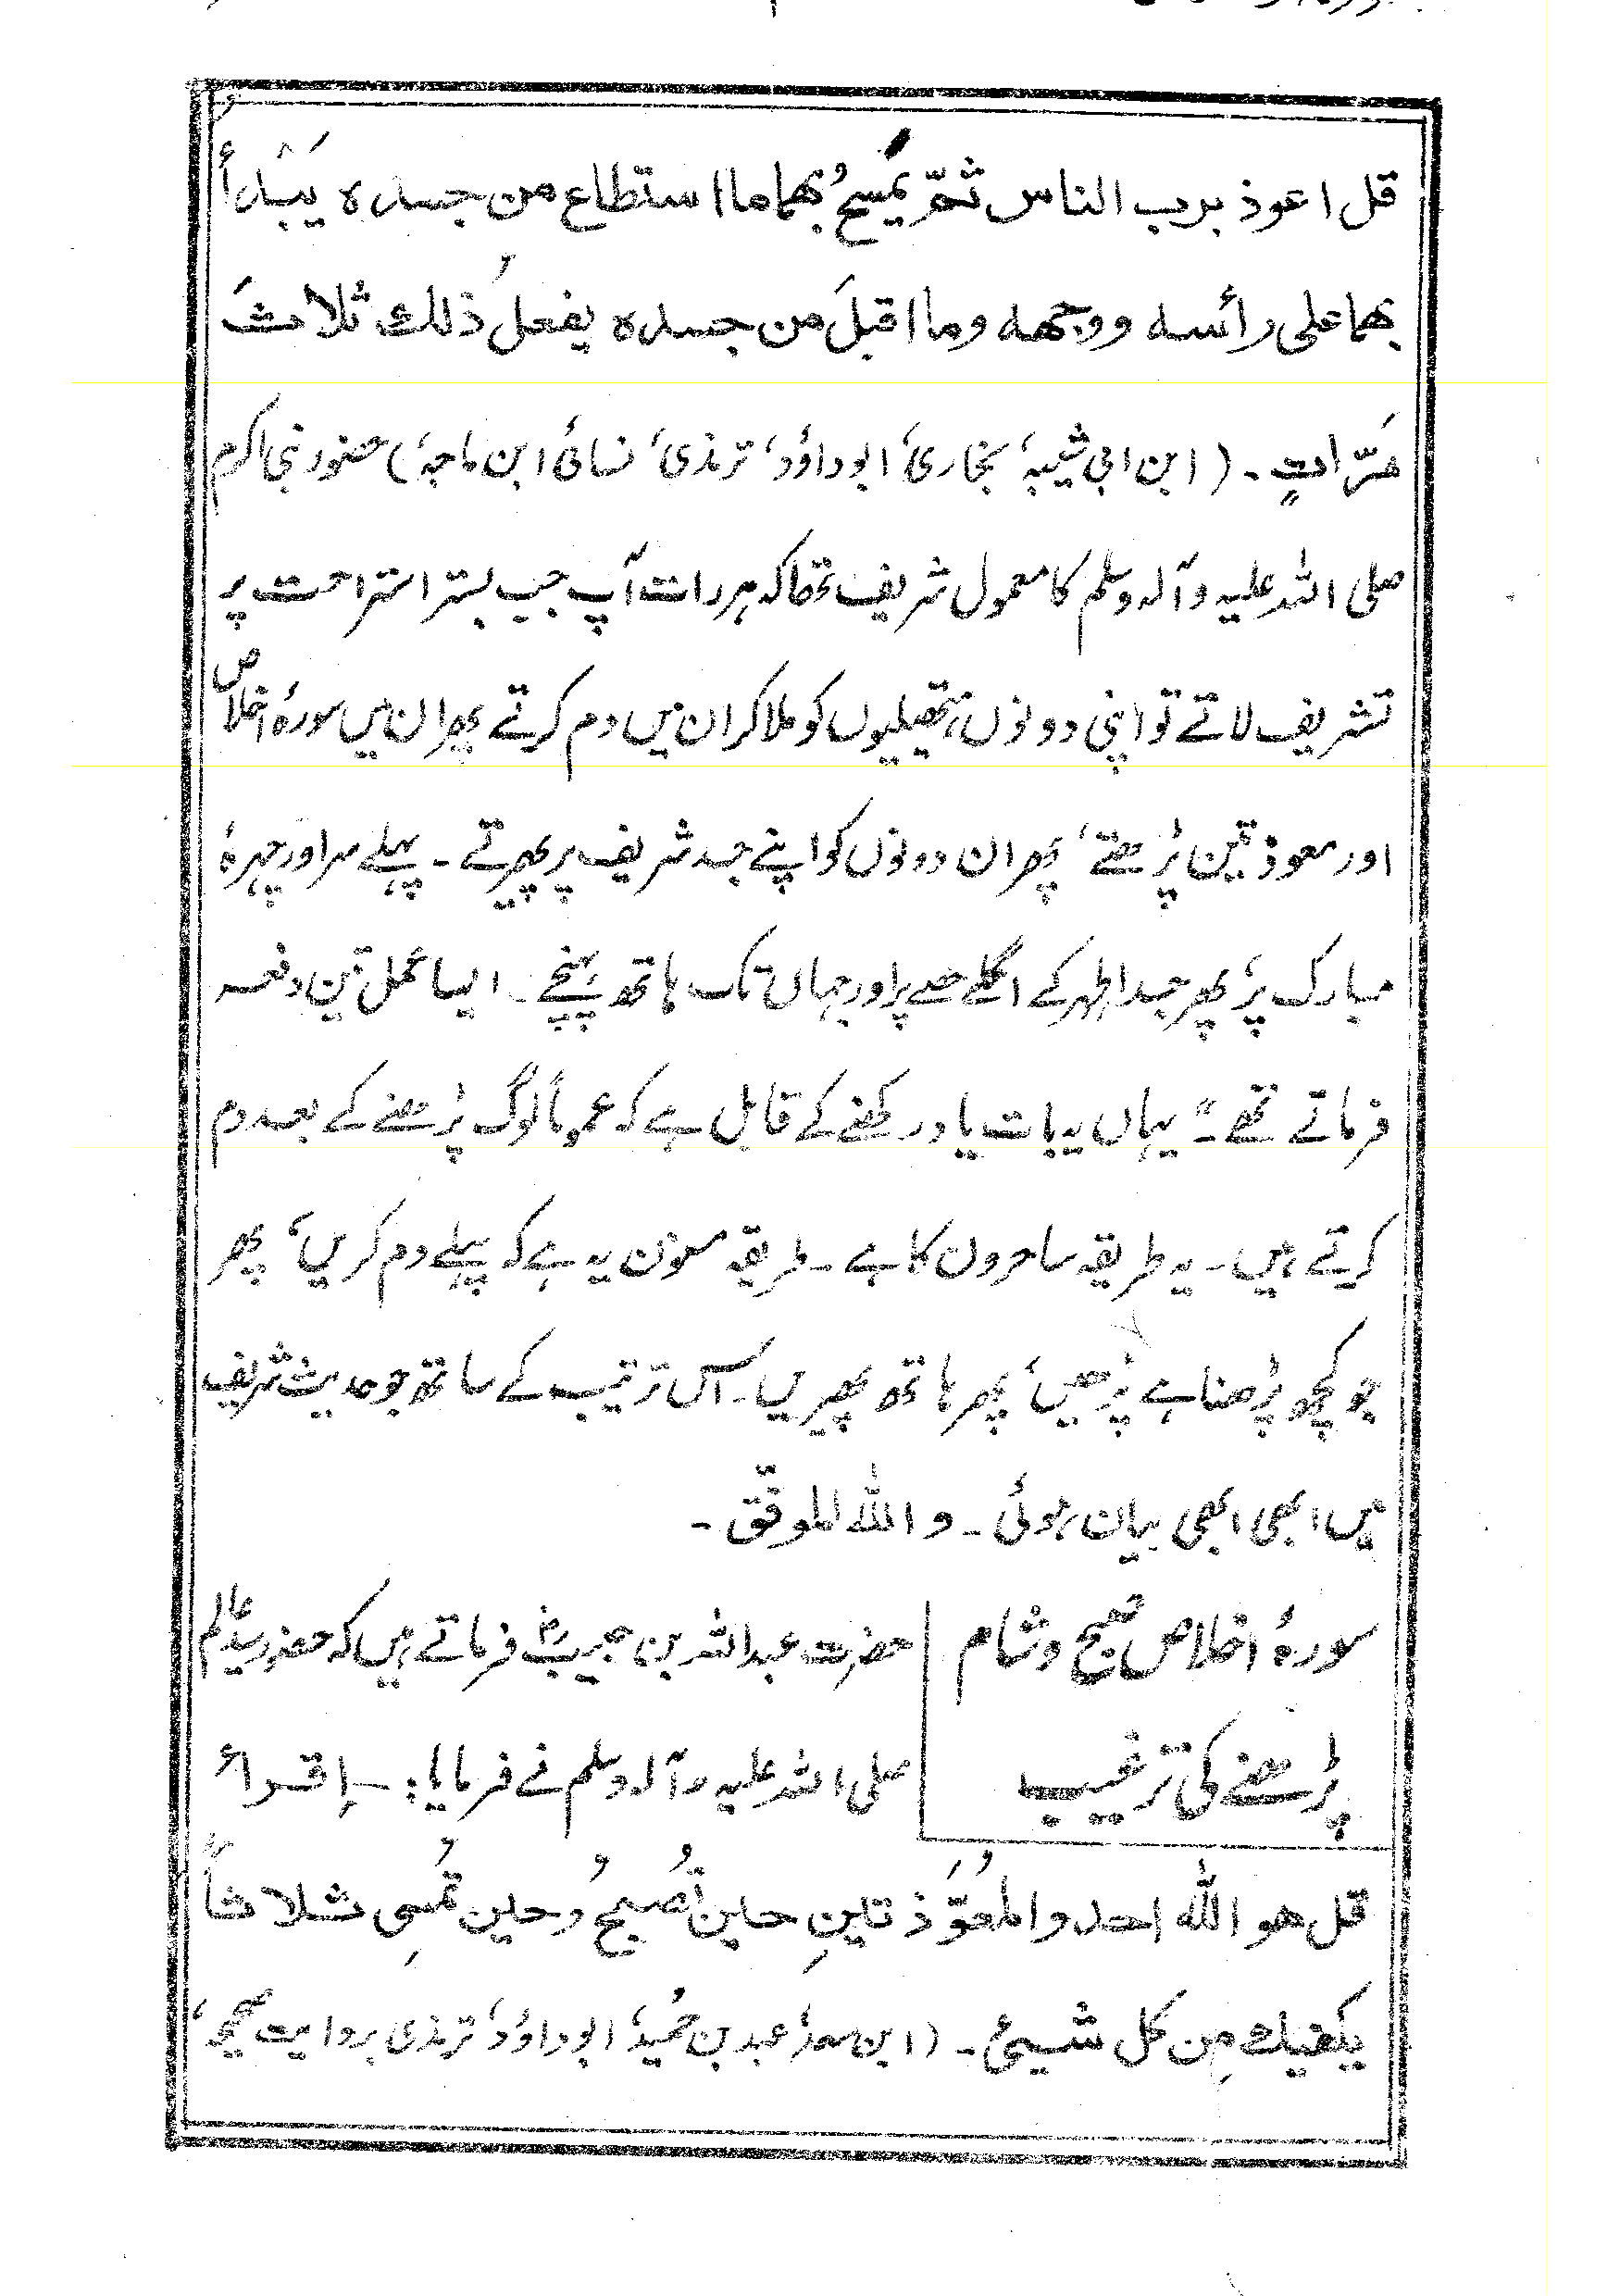 قل اعوذ برب الناس ثمّ يَمسَحُ بهما ما استطاع من جسده يَبْدأُ
بهما على رأسه ووجهه وما اقبلَ من جسده يفعلُ ذٰلك ثلاثَ
مَرّاتٍ ۔ (ابن ابی شیبہ، بخاری، ابوداؤد، ترمذی، نسائی ابن ماجہ) حضور نبی اکرم
صلی اللہ علیہ وآلہ وسلم کا معمول شریف تھا کہ ہر رات آپ جب بستر استراحت پر
تشریف لاتے تو اپنی دونوں ہتھیلیوں کو ملا کر ان میں دم کرتے پھر ان میں سورۂ اخلاص
اور معوذتین پڑھتے، پھر ان دونوں کو اپنے جسد شریف پر پھیرتے ۔ پہلے سر اور چہرۂ
مبارک پر، پھر جسد اطہر کے اگلے حصے پر اور جہاں تک ہاتھ پہنچے ۔ ایسا عمل تین دفعہ
فرماتے تھے ۔" یہاں یہ بات یاد رکھنے کے قابل ہے کہ عموماً لوگ پڑھنے کے بعد دم
کرتے ہیں ۔ یہ طریقہ ساحروں کا ہے ۔ طریقہ مسنون یہ ہے کہ پہلے دم کریں، پھر
جو کچھ پڑھنا ہے پڑھیں، پھر ہاتھ پھیریں ۔ اس ترتیب کے ساتھ جو حدیث شریف
میں ابھی ابھی بیان ہوئی ۔ و اللہ الموفّق ۔
سورۂ اخلاص صبح وشام
پڑھنے کی ترغیب
حضرت عبداللہ بن خبیبؓ فرماتے ہیں کہ حضور سید عالم
صلی اللہ علیہ وآلہ وسلم نے فرمایا : ۔ اِقرأ
قل هو الله احد والمُعَوّذتينِ حين تُصبحُ وحين تُمسِى ثلاثاً
يكفيك مِن كل شيئ ۔ (ابن سعد، عبد بن حُمید، ابوداؤد، ترمذی بروایت صحیحہ،